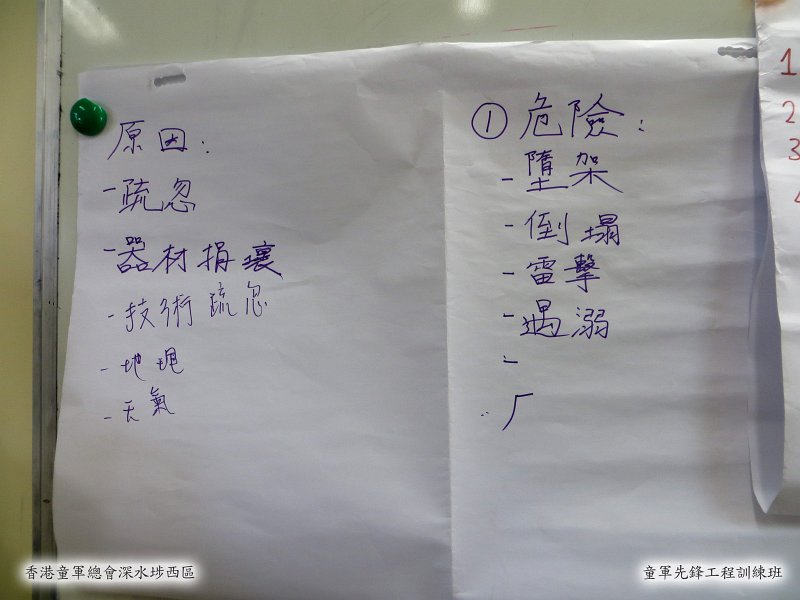 原因：
-疏忽
-器材損壞
-技術疏忽
-地理
-天氣
① 危險：
-墮架
-倒塌
-雷擊
-遇溺
-
1
2
3
香港童軍總會深水埗西區
童軍先鋒工程訓練班